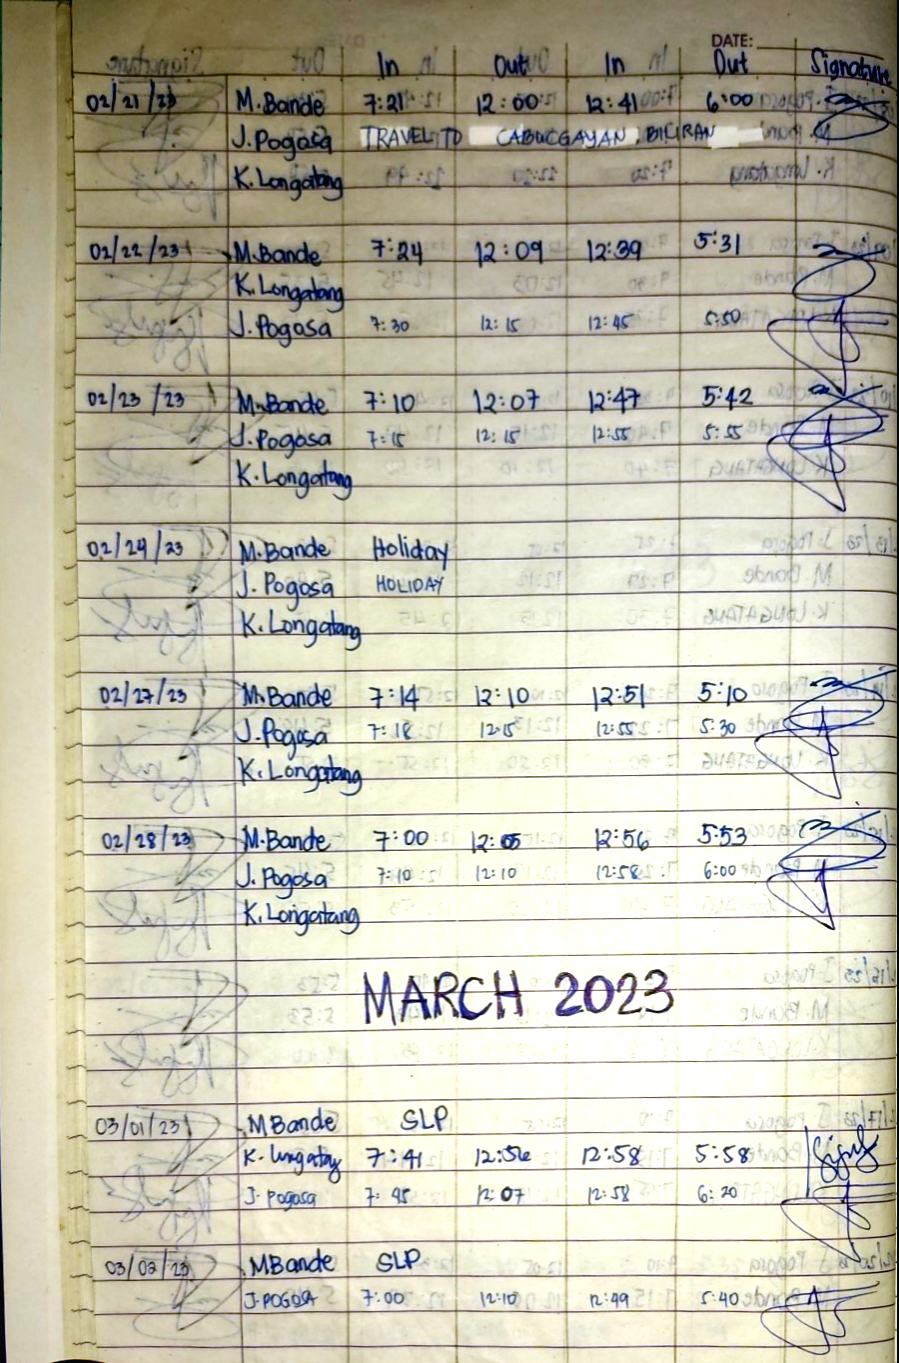 DATE:
In Out In Out Signature
02/21/23 M.Bande 7:21 12:00 12:41 6:00
J.Pogosa TRAVEL TO CABUCGAYAN, BILIRAN
K.Longatang
02/22/23 M.Bande 7:24 12:09 12:39 5:31
K.Longatang
J.Pogosa 7:30 12:15 12:45 5:50
02/23/23 M.Bande 7:10 12:07 12:47 5:42
J.Pogosa 7:15 12:15 12:55 5:55
K.Longatang
02/24/23 M.Bande Holiday
J.Pogosa HOLIDAY
K.Longatang
02/27/23 M.Bande 7:14 12:10 12:51 5:10
J.Pogosa 7:18 12:15 12:55 5:30
K.Longatang
02/28/23 M.Bande 7:00 12:05 12:56 5:53
J.Pogosa 7:10 12:10 12:58 6:00
K.Longatang
MARCH 2023
03/01/23 M Bande SLP
K. Longatang 7:41 12:58 5:58
J. Pogosa 7:45 12:07 12:58 6:20
03/02/23 M Bande SLP
J.POGOSA 7:00 12:10 12:49 5:40